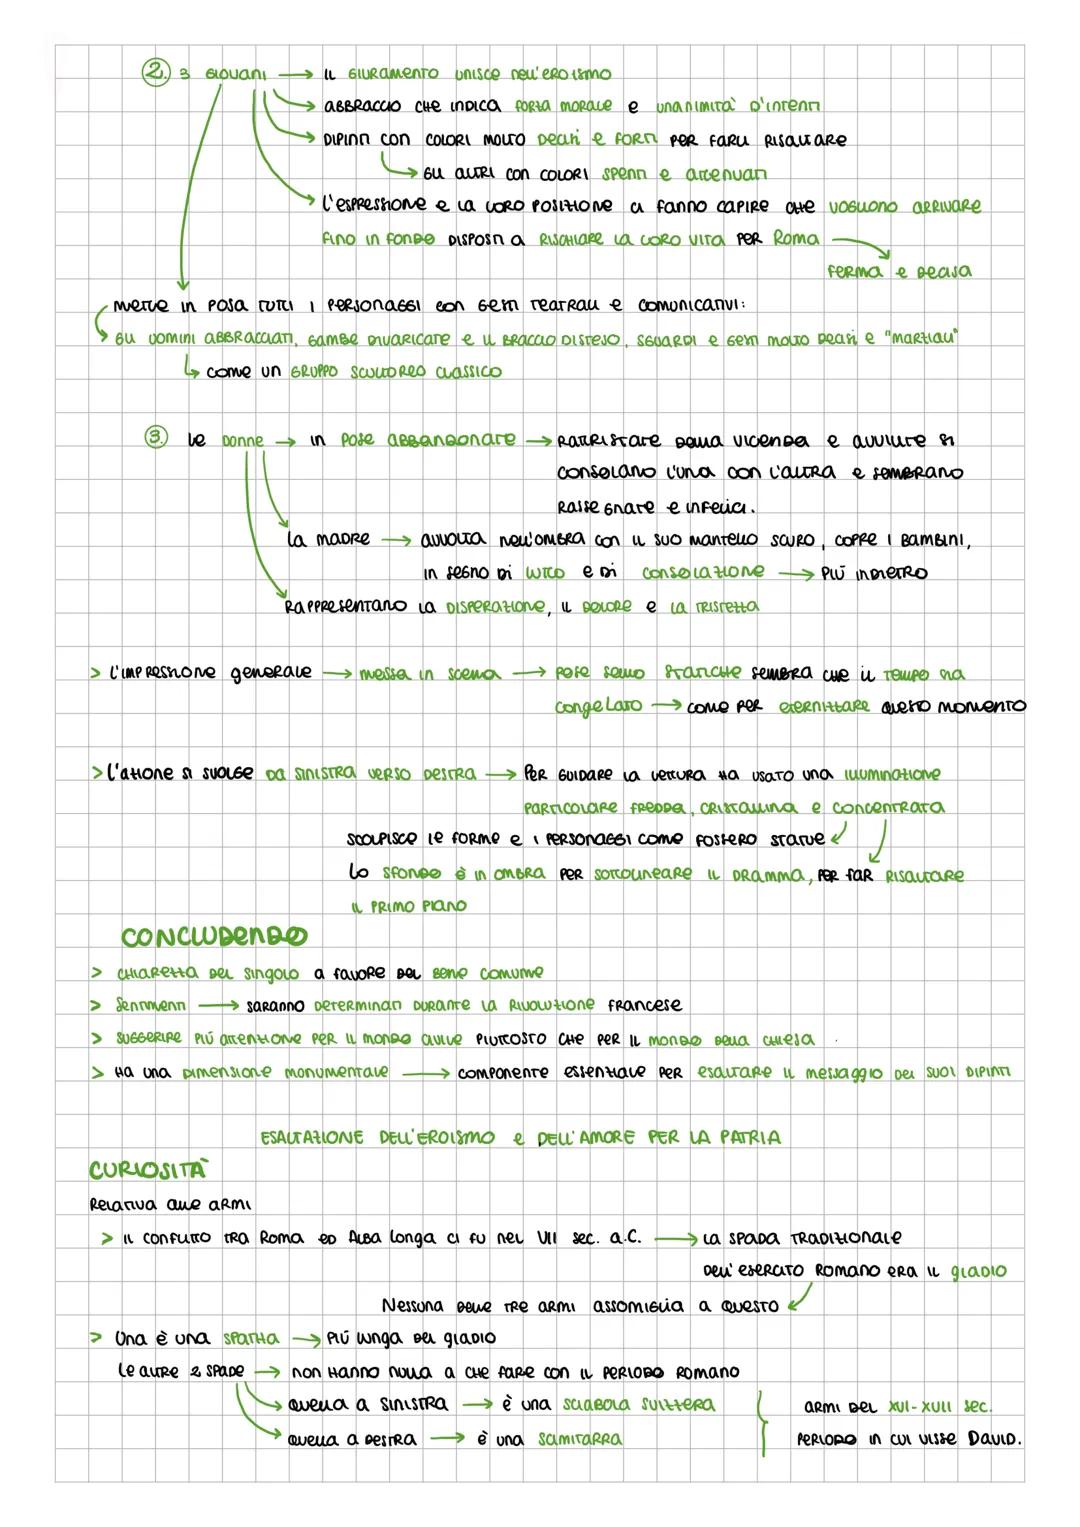 2. 3 GIOVANI → IL GIURAMENTO UNISCE NELL'EROISMO
→ ABBRACCIO CHE INDICA FORZA MORALE E UNANIMITÀ D'INTENTI
→ DIPINTI CON COLORI MOLTO DECISI E FORTI PER FARLI RISALTARE
→ GLI ALTRI CON COLORI SPENTI E ATTENUATI
→ L'ESPRESSIONE E LA LORO POSIZIONE CI FANNO CAPIRE CHE VOGLIONO ARRIVARE
FINO IN FONDO DISPOSTI A RISCHIARE LA LORO VITA PER ROMA
FERMA E DECISA
METTE IN POSA TUTTI I PERSONAGGI CON GESTI TEATRALI E COMUNICATIVI:
→ GLI UOMINI ABBRACCIATI, GAMBE DIVARICATE E IL BRACCIO DISTESO, SGUARDI E GESTI MOLTO DECISI E "MARTIALI"
→ COME UN GRUPPO SCULTOREO CLASSICO
3. LE DONNE → IN POSE ABBANDONATE → RATTRISTATE DALLA VICENDA E AVVILITE SI
CONSOLANO L'UNA CON L'ALTRA E SEMBRANO
RASSEGNATE E INFELICI.
LA MADRE → AVVOLTA NELL'OMBRA CON IL SUO MANTELLO SCURO, COPRE I BAMBINI,
IN SEGNO DI LUTTO E DI CONSOLAZIONE → PIÙ INDIETRO
RAPPRESENTANO LA DISPERAZIONE, IL DOLORE E LA TRISTEZZA
> L'IMPRESSIONE GENERALE → MESSA IN SCENA → POSE SONO STATICHE SEMBRA CHE IL TEMPO SIA
CONGELATO → COME PER ETERNIZZARE QUESTO MOMENTO
> L'AZIONE SI SVOLGE DA SINISTRA VERSO DESTRA → PER GUIDARE LA LETTURA HA USATO UNA ILLUMINAZIONE
PARTICOLARE FREDDA, CRISTALLINA E CONCENTRATA
SCOLPISCE LE FORME E I PERSONAGGI COME FOSSERO STATUE
LO SFONDO È IN OMBRA PER SOTTOLINEARE IL DRAMMA, PER FAR RISALTARE
IL PRIMO PIANO
CONCLUDENDO
> CHIAREZZA DEL SINGOLO A FAVORE DEL BENE COMUNE
> SENTIMENTI → SARANNO DETERMINATI DURANTE LA RIVOLUZIONE FRANCESE
> SUGGERIRE PIÙ ATTENZIONE PER IL MONDO CIVILE PIUTTOSTO CHE PER IL MONDO DELLA CHIESA
> HA UNA DIMENSIONE MONUMENTALE → COMPONENTE ESSENZIALE PER ESALTARE IL MESSAGGIO DEI SUOI DIPINTI
ESALTAZIONE DELL'EROISMO E DELL'AMORE PER LA PATRIA
CURIOSITÀ
RELATIVA ALLE ARMI
> IL CONFLITTO TRA ROMA ED ALBA LONGA CI FU NEL VII SEC. A.C. → LA SPADA TRADIZIONALE
DELL'ESERCITO ROMANO ERA IL GLADIO
NESSUNA DELLE TRE ARMI ASSOMIGLIA A QUESTO
> UNA È UNA SPATHA → PIÙ LUNGA DEL GLADIO
LE ALTRE 2 SPADE → NON HANNO NULLA A CHE FARE CON IL PERIODO ROMANO
→ QUELLA A SINISTRA → È UNA SCIABOLA SVIZZERA
→ QUELLA A DESTRA → È UNA SCIMITARRA
ARMI DEL XVI-XVII SEC.
PERIODO IN CUI VISSE DAVID.